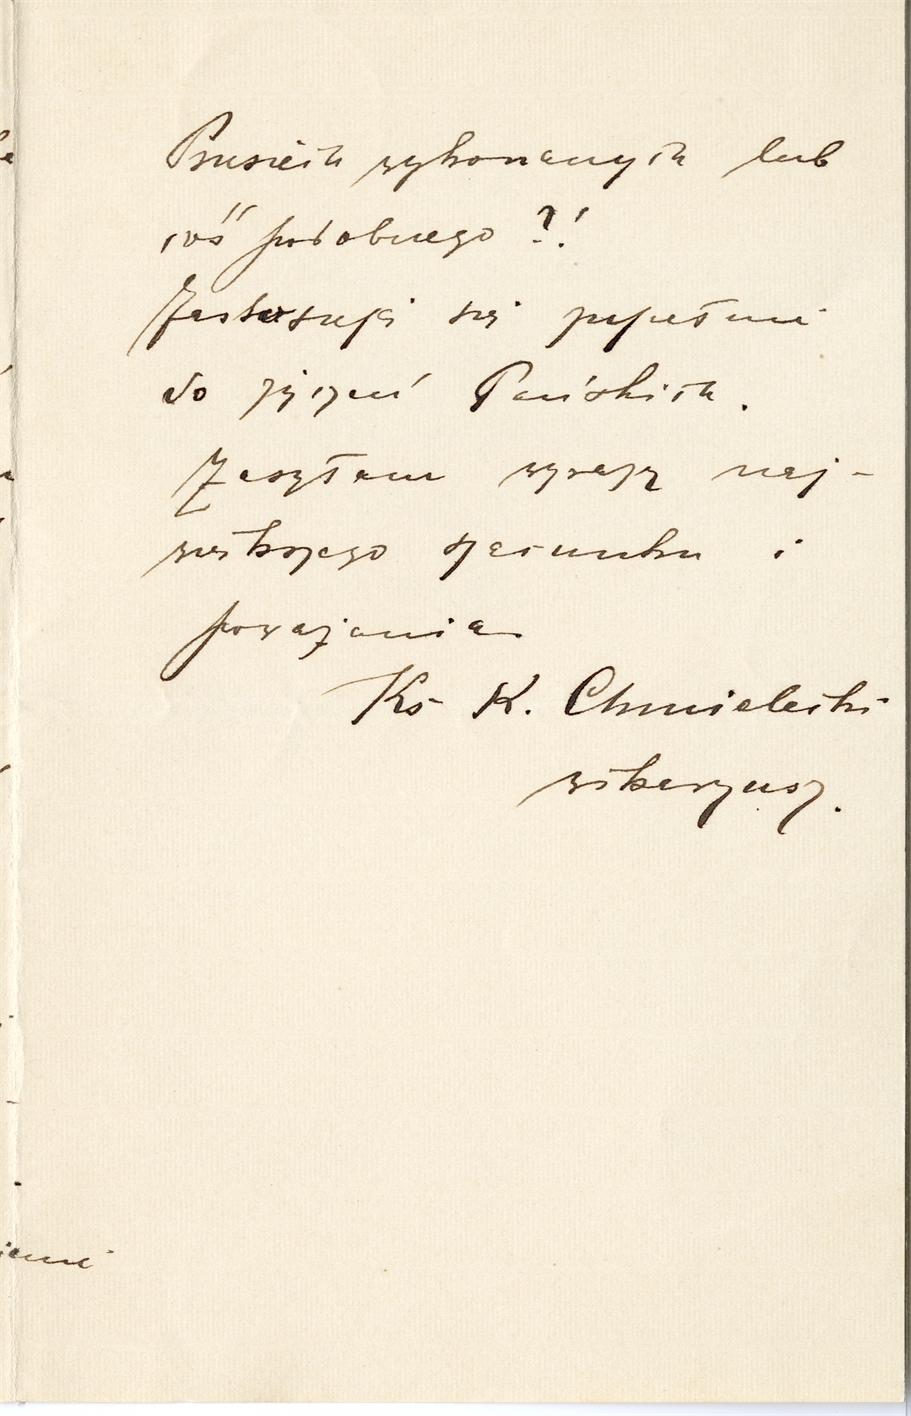 Prusiech wykonanych lub
coś podobnego ?!
Zastosuję się zupełnie
do życzeń Pańskich.
Zasyłam wyrazy naj-
większego szacunku i
poważania
Ks K. Chmielecki
wikaryusz.